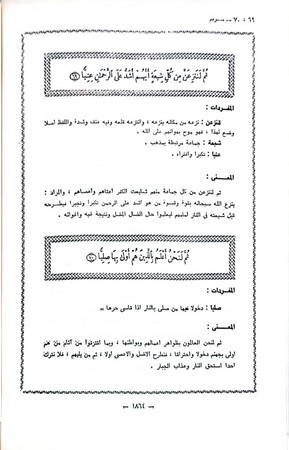 ٦٩ ، ٧٠ ــ مــريم
ثُمَّ لَنَنزِعَنَّ مِن كُلِّ شِيعَةٍ أَيُّهُمْ أَشَدُّ عَلَى الرَّحْمَٰنِ عِتِيًّا ﴿٦٩﴾
المفردات :
لننزعن : نزعه من مكانه ينزعه ، وانتزعه قلعه وفيه عنف وشدة واللفظ اصلا
وضع لهذا ، فهو موح بهوانهم على الله .
شيعة : جماعة مرتبطة بمذهب .
عتيا : تكبرا وافتراء .
المعــنى :
ثم لننزعن من كل جماعة ملهم شايعت الكفر أعتاهم وأعصاهم ، والمراد :
ينزع الله سبحانه بقوة وقسوة من هو أشد على الرحمن تكبرا وتجبرا فيطرحه
قبل شيعته فى النار أمامهم ليعلموا حال الضال المضل ونتيجة غيه وأغوائه .
ثُمَّ لَنَحْنُ أَعْلَمُ بِالَّذِينَ هُمْ أَوْلَىٰ بِهَا صِلِيًّا ﴿٧٠﴾
المفردات :
صليا : دخولا فيها من صلى بالنار اذا قاسى حرها ــ
المعــنى :
ثم لنحن العالمون بظواهر أعمالهم وبواطنها ، وبما اقترفوا من آثام من هم
أولى بجهنم دخولا واحتراقا ، فنطرح الأضل والأعصى أولا ، ثم من يليهم ، فلا نترك
أحدا استحق النار وعذاب الجبار .
ــ ١٨٦٤ ــ